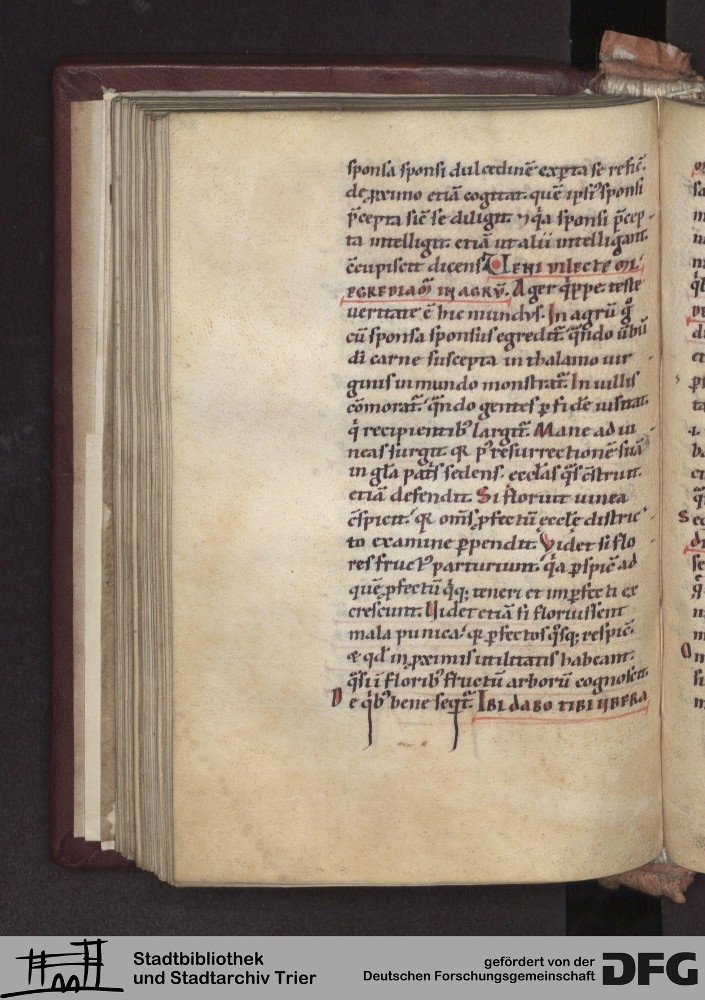 sponsa sponsi dulcedinē exꝑta se reficˉ.
de ꝓximo etiā cogitat. quē ipsiꝰ sponsi
p̄cepta sic̄ se diligit. ⁊ q̇a sponsi p̄cep-
ta intelligit. etiā ut alii intelligant.
c̄cupiscit dicens. VENI DILECTE MI.
EGREDIAM̄ IN AGRV̄. Ager q̇ppe teste
ueritate ē hic mundvs. In agrū g̊
cū sponsa sponsus egredit᷑. q̄ndo ūbū
dī carne suscepta in thalamo uir
ginis in mundo monstrat᷑. In uillis
cōmorat᷑. q̄ndo gentes ꝑ fidē uisitat.
q̇ recipientibꝰ largit᷑. Mane ad ui-
neas surgit. qꝛ pꝰ resurrectionē suā
in gl̄a pat̄s sedens. eccl̄as q̊s c̄struit.
etiā defendit. Si floruit uinea
c̄spicit. qꝛ om̄s ꝓfectū eccl̄e distric-
to examine ꝑpendit. Videt si flo
res fructꝰ parturiunt. q̇a ꝑspic̄ ad
quē ꝓfectū q̇q; teneri et imꝑfecti ex
crescunt. Videt etiā si floruissent
mala punica. qꝛ ꝑfectos q̊sq; respic̄.
& qd̄ in ꝓximis utilitatis habeant.
q̊si ī floribꝰ fructū arborū cognoscit.
De q̇bꝰ bene seqt᷑. IBI DABO TIBI VBERA
Stadtbibliothek
und Stadtarchiv Trier
gefördert von der
Deutschen Forschungsgemeinschaft
DFG